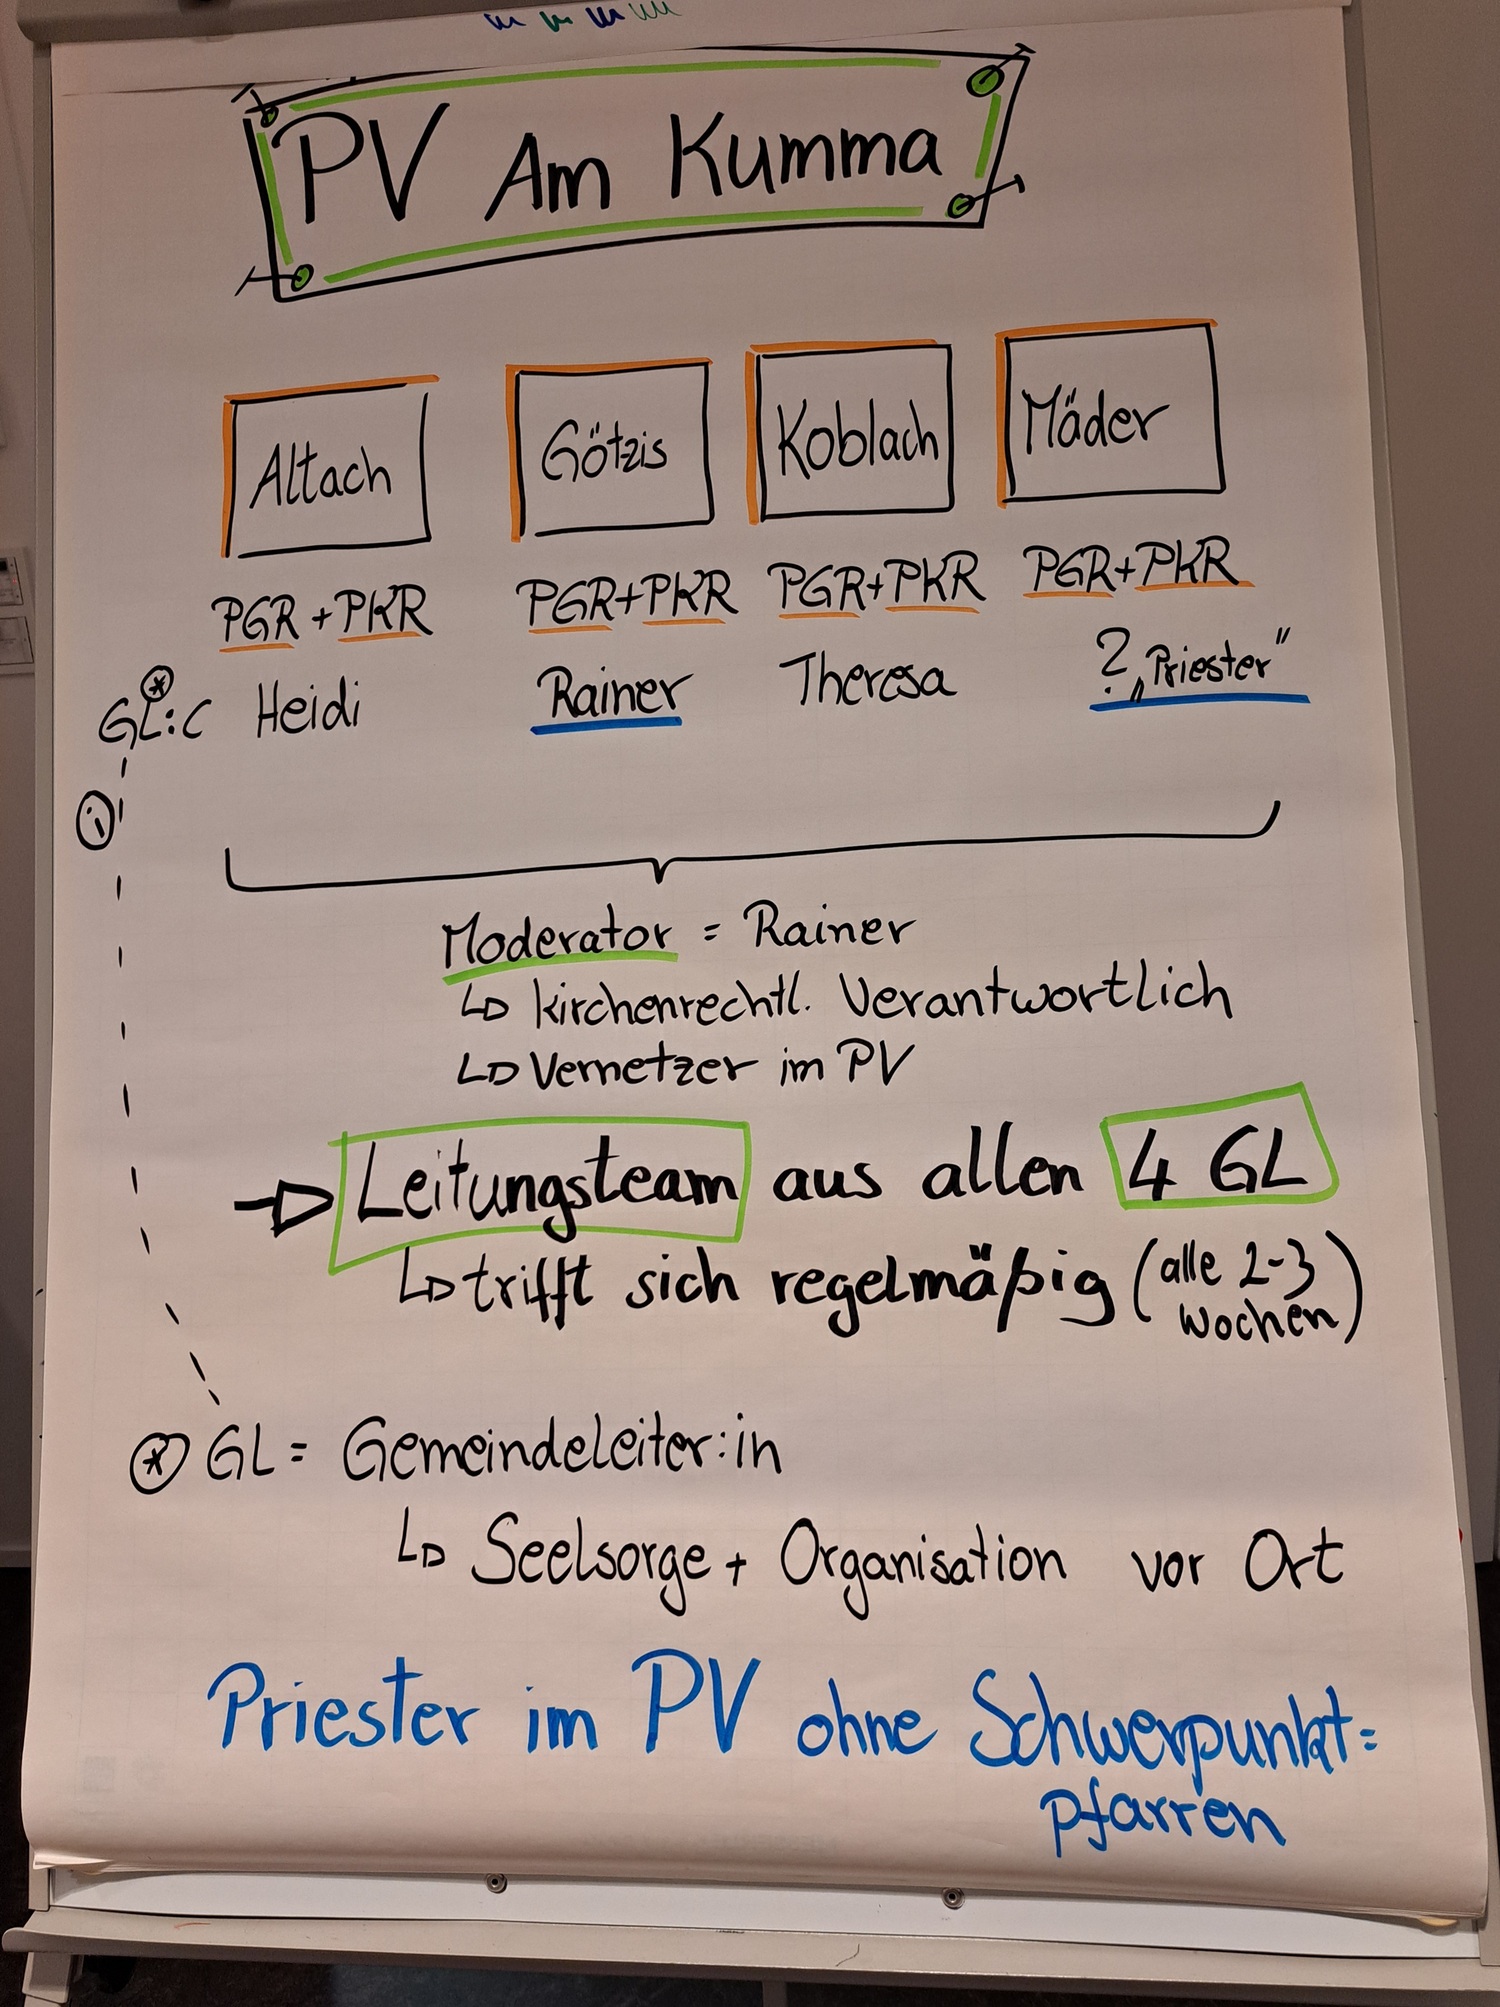 PV Am Kumma
Altach Götzis Koblach Mäder
PGR + PKR PGR+PKR PGR+PKR PGR+PKR
GL: Heidi Rainer Theresa ? „Priester"
i
Moderator = Rainer
kirchenrechtl. Verantwortlich
Vernetzer im PV
Leitungsteam aus allen 4 GL
trifft sich regelmäßig (alle 2-3
Wochen)
* GL = Gemeindeleiter:in
Seelsorge + Organisation vor Ort
Priester im PV ohne Schwerpunkt=
pfarren